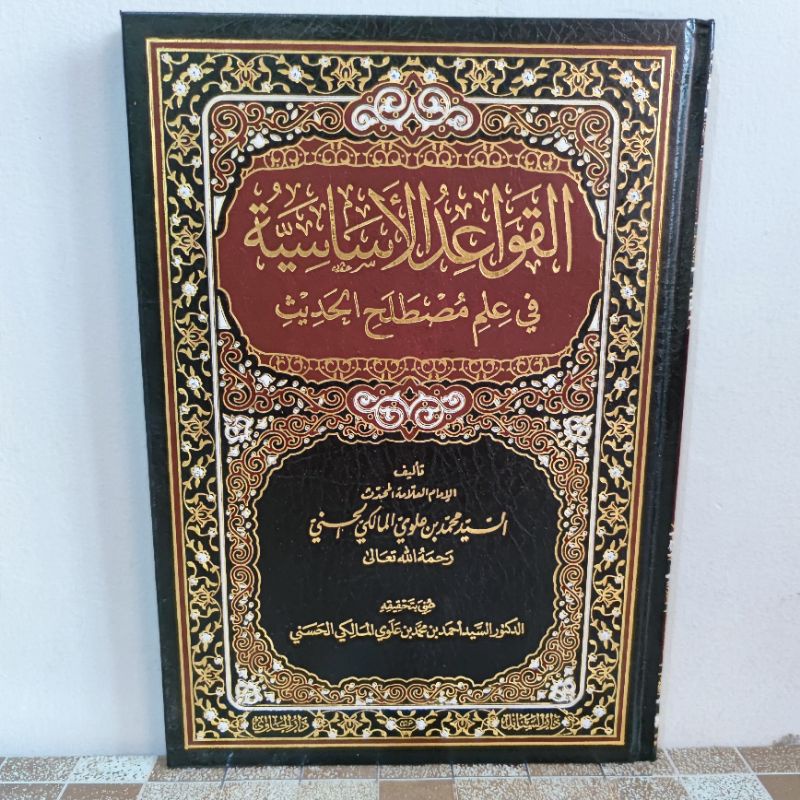 القَوَاعِدُ الأَسَاسِيَّةُ
فِي عِلْمِ مُصْطَلَحِ الحَدِيْثِ
تأليف
الإمام العلامة المحدّث
السيّد محمّد بن علوي المالكي الحسني
رحمه الله تعالى
عُنِيَ بتَحْقِيقِهِ
الدكتور السَّيِّد أحمد بن محمّد بن عَلَوي المَالكي الحَسَني
دار السنابل
دار الحاوي